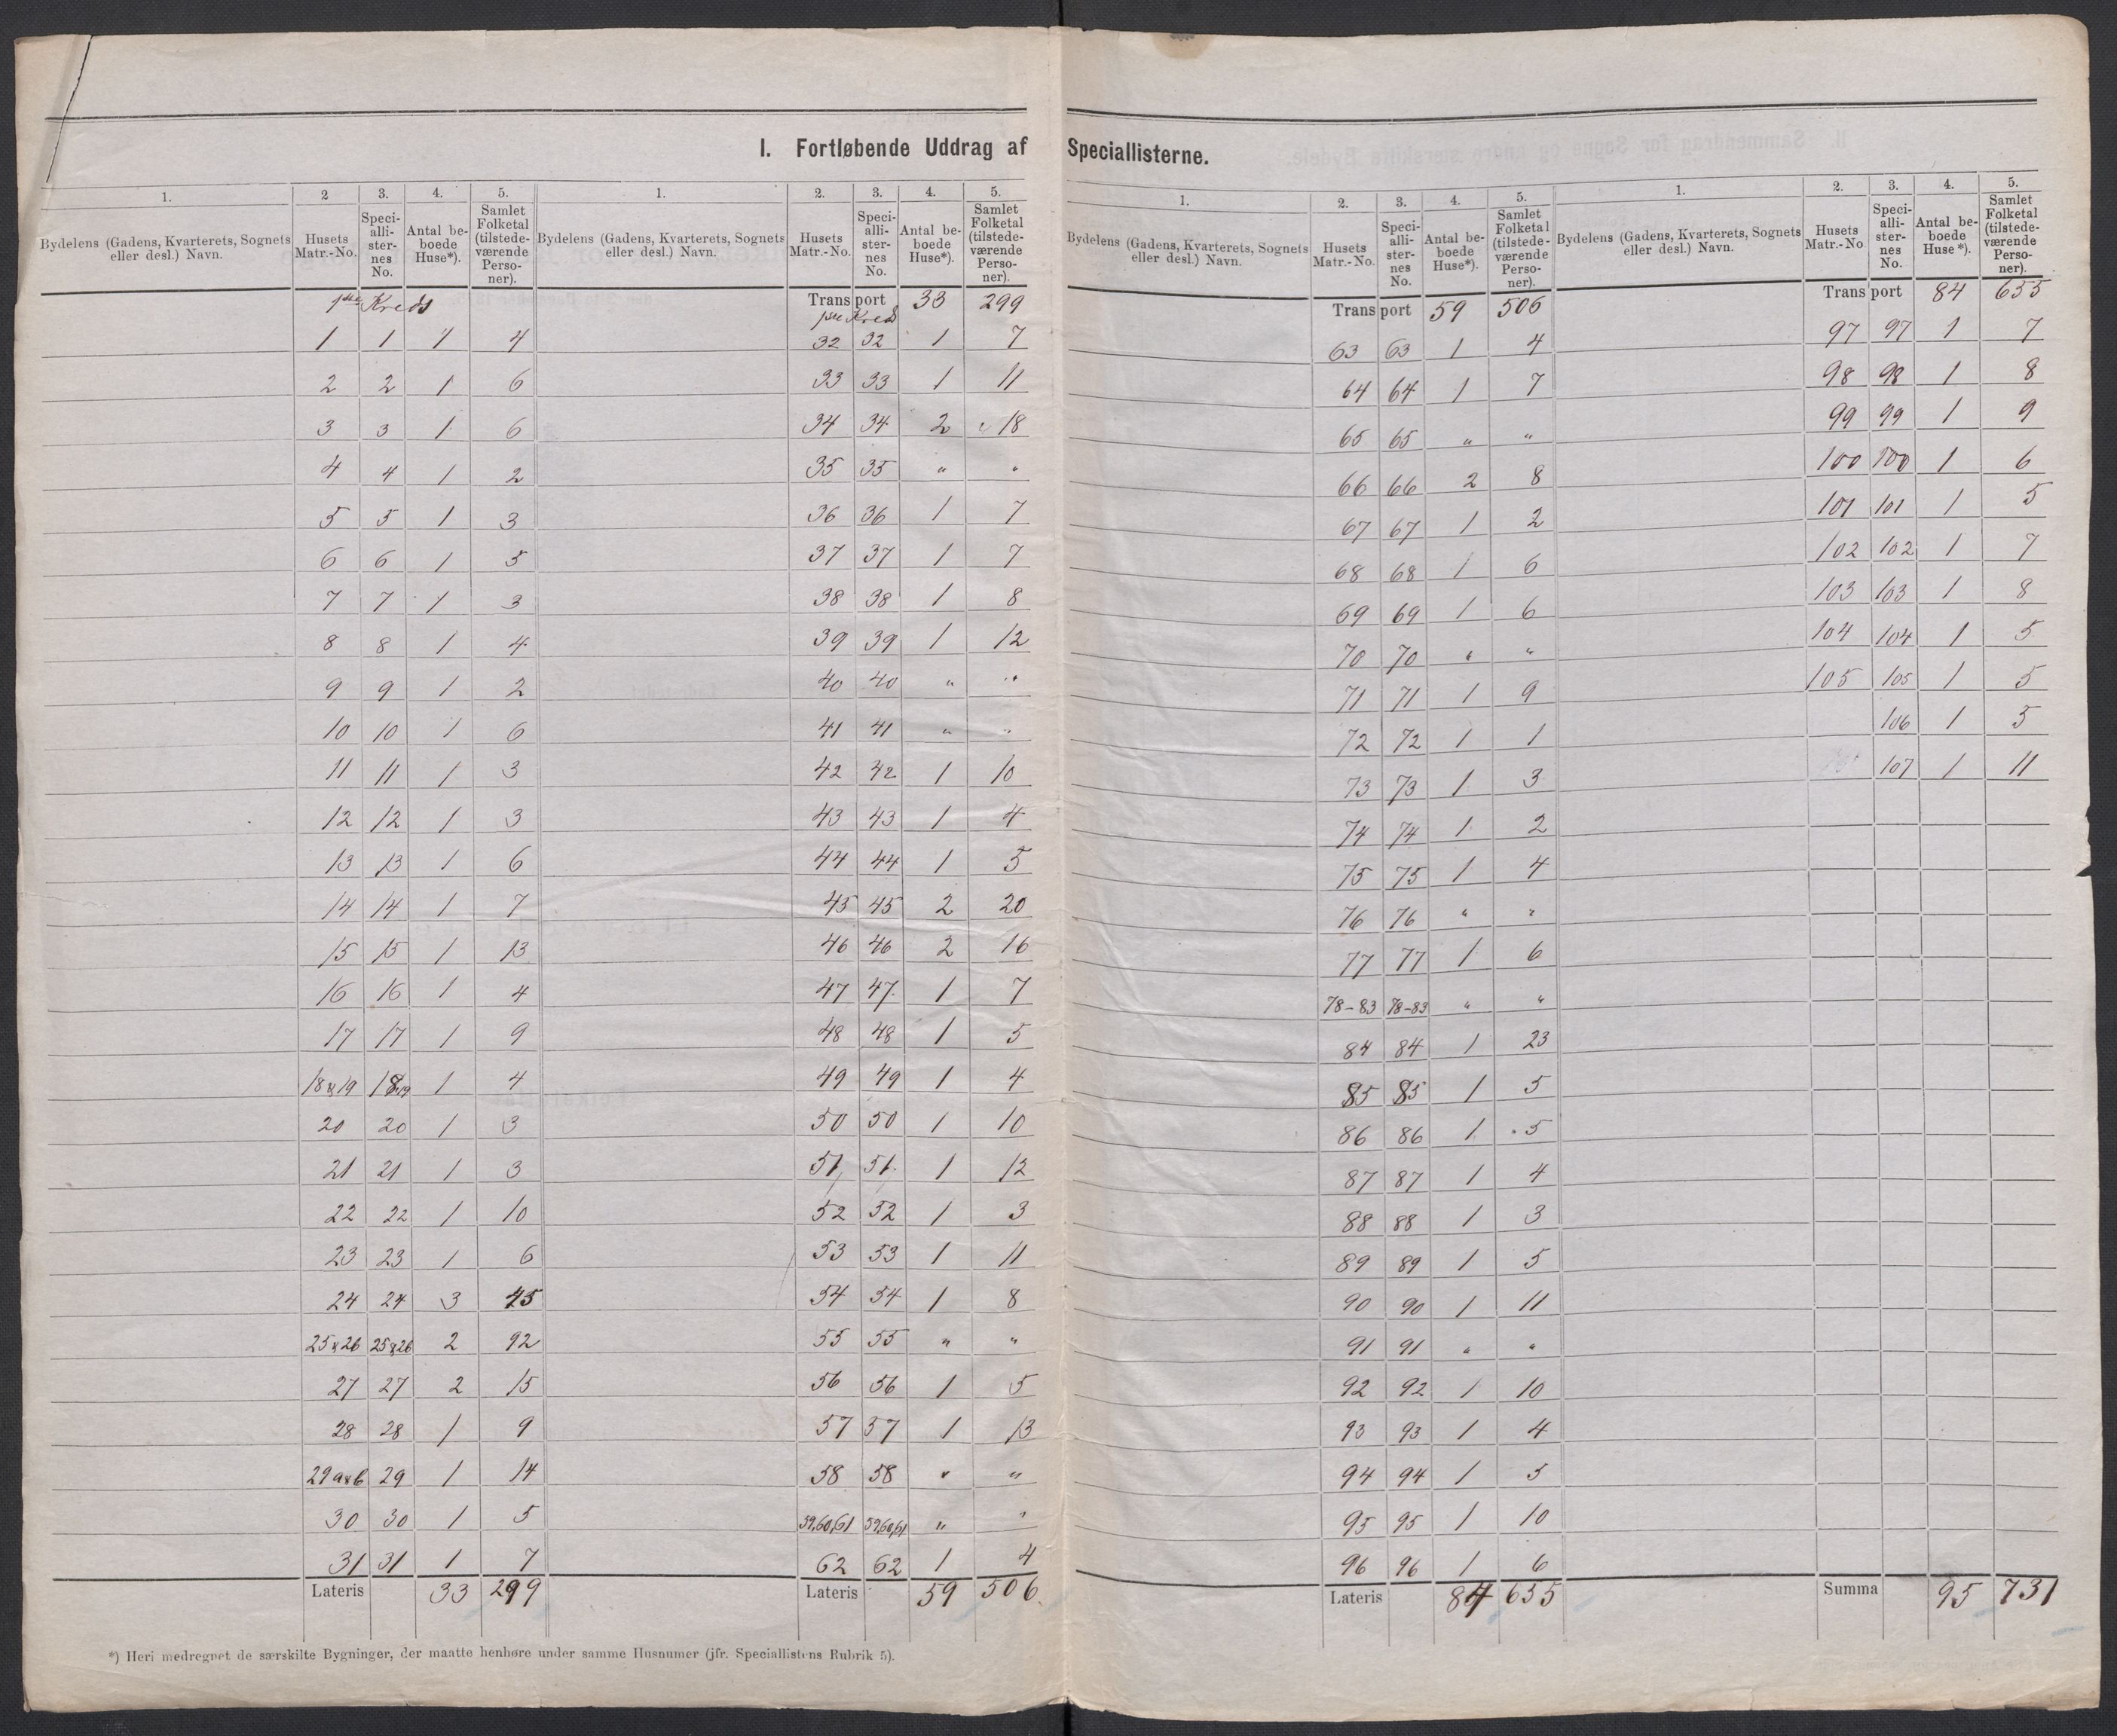 I. Fortløbende Uddrag af Speciallisterne.
1. 2 3. 4. 5.
Bydelens (Gadens, Kvarterets, Sognets eller desl.) Navn. Husets Matr.-No. Speci-alli-ster-nes No. Antal be-boede Huse*). Samlet Folketal (tilstede-værende Perso-ner).
1ste Kreds
1 1 1 4
2 2 1 6
3 3 1 6
4 4 1 2
5 5 1 3
6 6 1 5
7 7 1 3
8 8 1 4
9 9 1 2
10 10 1 6
11 11 1 3
12 12 1 3
13 13 1 6
14 14 1 7
15 15 1 13
16 16 1 4
17 17 1 9
18 & 19 18 & 19 1 4
20 20 1 3
21 21 1 3
22 22 1 10
23 23 1 6
24 24 3 45
25 & 26 25 & 26 2 92
27 27 2 15
28 28 1 9
29 a & b 29 1 14
30 30 1 5
31 31 1 7
Lateris 33 299
1. 2. 3. 4. 5.
Bydelens (Gadens, Kvarterets, Sognets eller desl.) Navn. Husets Matr.-No. Speci-alli-ster-nes No. Antal be-boede Huse*). Samlet Folketal (tilstede-værende Perso-ner).
Transport 33 299
1ste Kreds
32 32 1 7
33 33 1 11
34 34 2 18
35 35 " "
36 36 1 7
37 37 1 7
38 38 1 8
39 39 1 12
40 40 " "
41 41 " "
42 42 1 10
43 43 1 4
44 44 1 5
45 45 2 20
46 46 2 16
47 47 1 7
48 48 1 5
49 49 1 4
50 50 1 10
51 51 1 12
52 52 1 3
53 53 1 11
54 54 1 8
55 55 " "
56 56 1 5
57 57 1 13
58 58 " "
59,60,61 59,60,61 " "
62 62 1 4
Lateris 59 506
1. 2. 3. 4. 5.
Bydelens (Gadens, Kvarterets, Sognets eller desl.) Navn. Husets Matr.-No. Speci-alli-ster-nes No. Antal be-boede Huse*). Samlet Folketal (tilstede-værende Perso-ner).
Transport 59 506
63 63 1 4
64 64 1 7
65 65 " "
66 66 2 8
67 67 1 2
68 68 1 6
69 69 1 6
70 70 " "
71 71 1 9
72 72 1 1
73 73 1 3
74 74 1 2
75 75 1 4
76 76 " "
77 77 1 6
78-83 78-83 " "
84 84 1 23
85 85 1 5
86 86 1 5
87 87 1 4
88 88 1 3
89 89 1 5
90 90 1 11
91 91 " "
92 92 1 10
93 93 1 4
94 94 1 5
95 95 1 10
96 96 1 6
Lateris 84 655
1. 2. 3. 4. 5.
Bydelens (Gadens, Kvarterets, Sognets eller desl.) Navn. Husets Matr.-No Speci-alli-ster-nes No. Antal be-boede Huse*). Samlet Folketal (tilstede-værende Perso-ner).
Transport 84 655
97 97 1 7
98 98 1 8
99 99 1 9
100 100 1 6
101 101 1 5
102 102 1 7
103 103 1 8
104 104 1 5
105 105 1 5
106 1 5
107 1 11
Summa 95 731
*) Heri medregnet de særskilte Bygninger, der maatte henhøre under samme Husnumer (jfr. Speciallistens Rubrik 5).